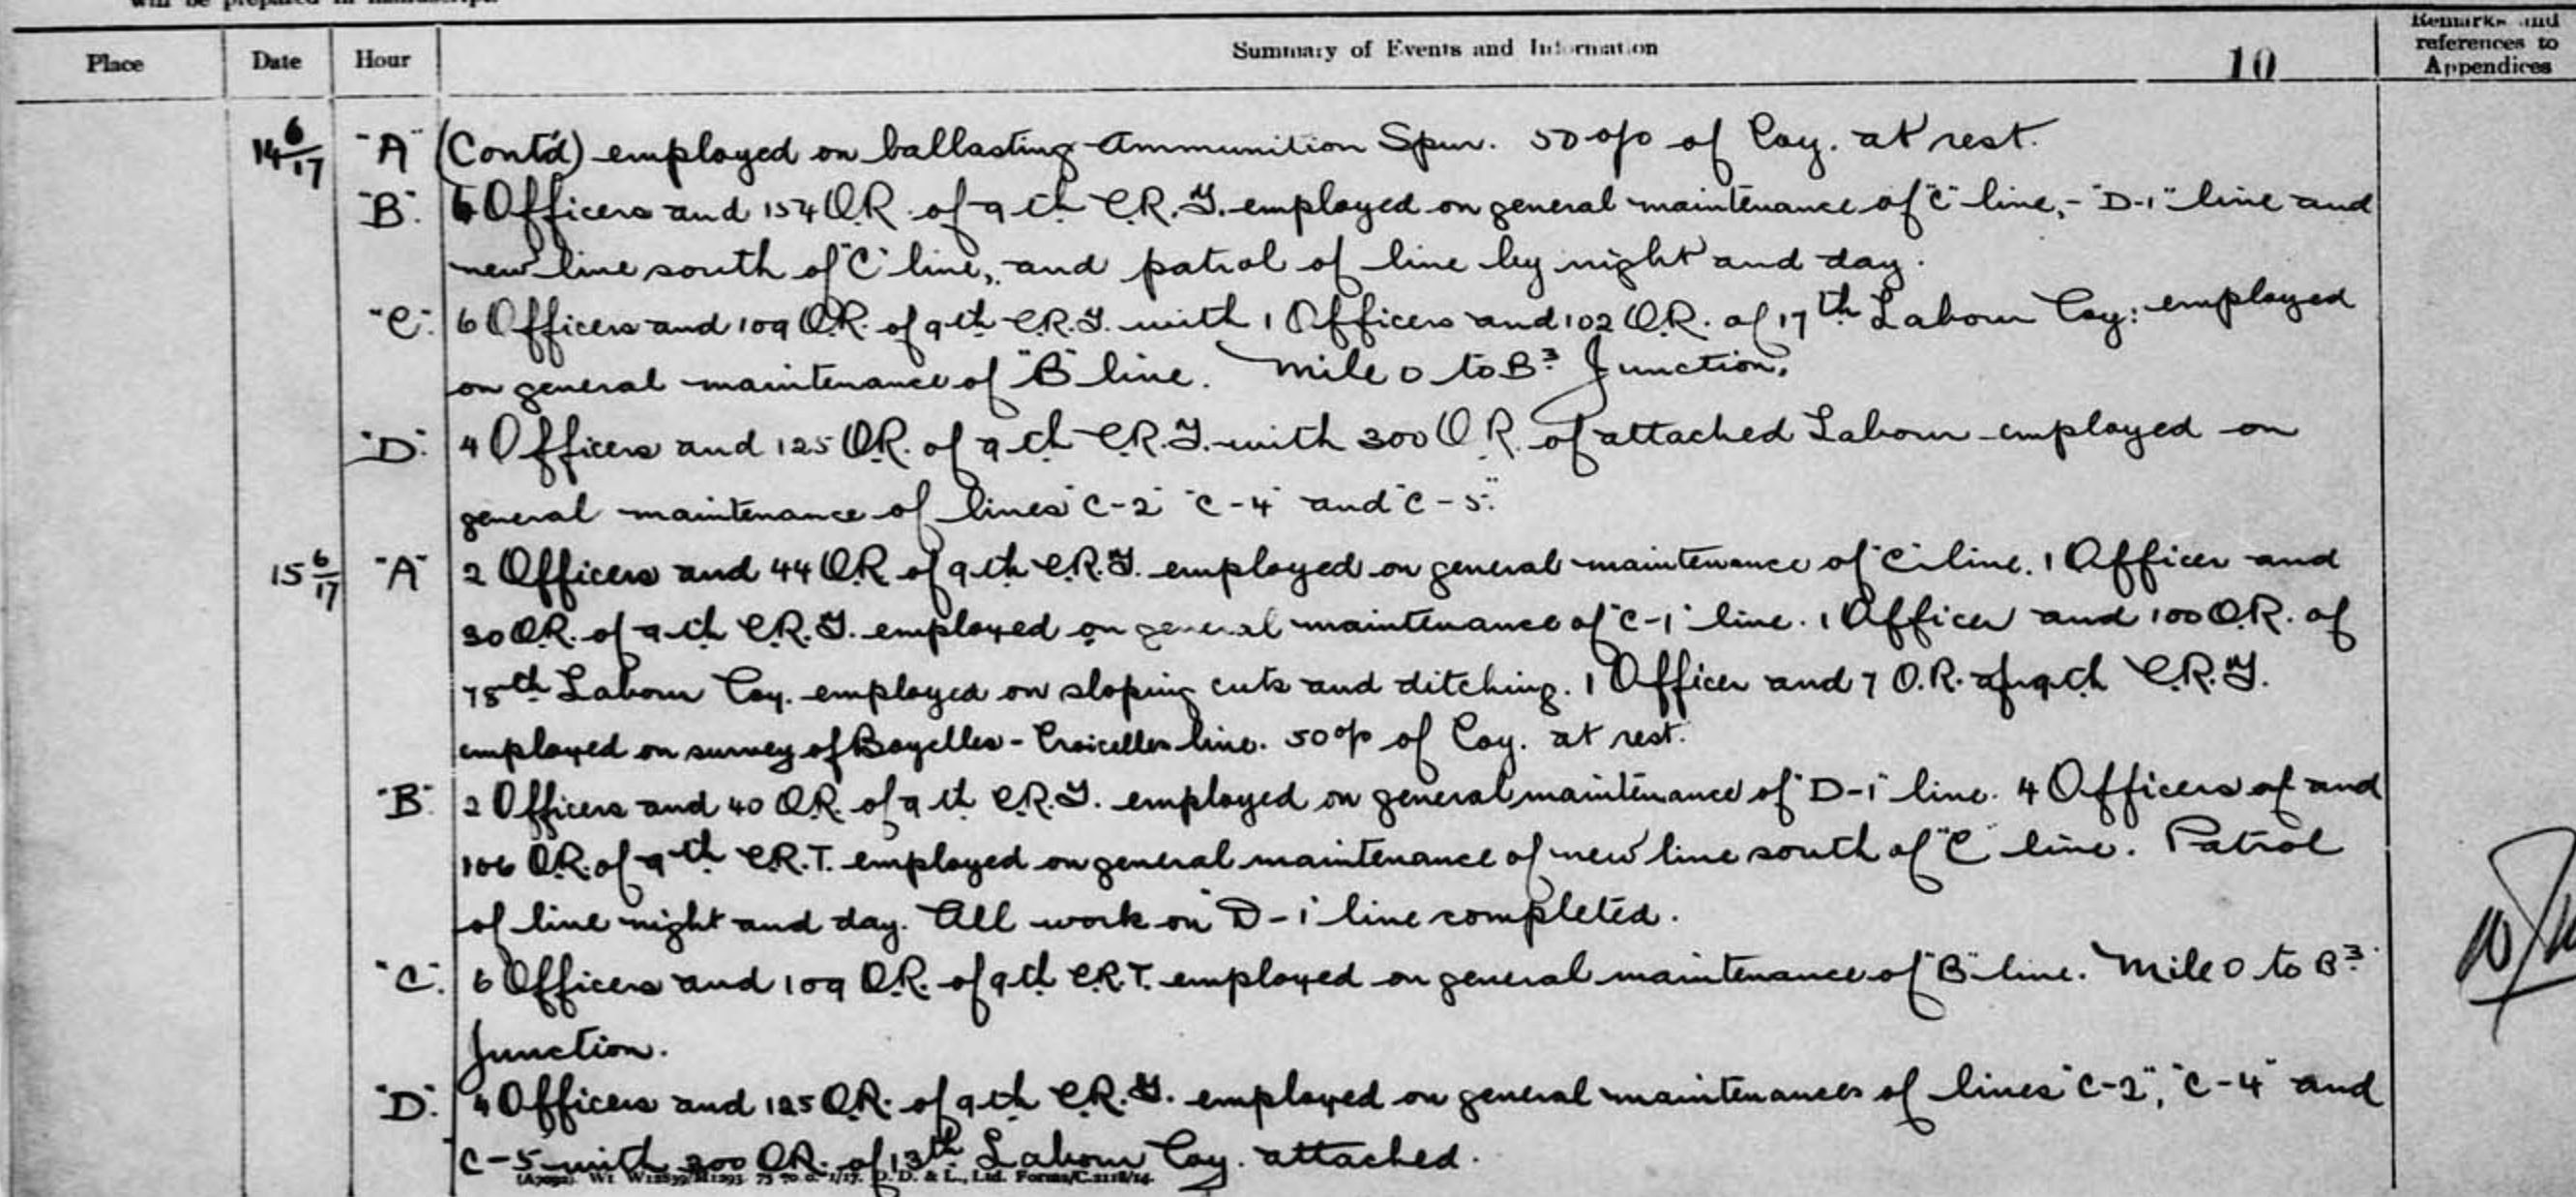 will be prepared in manuscript.
Place Date Hour Summary of Events and Information 10 Remarks and references to Appendices
14 6/17 "A" (Cont'd) employed on ballasting Ammunition Spur. 50 o/o of Coy. at rest.
"B". 6 Officers and 154 O.R. of 9th C.R.T. employed on general maintenance of "C" line, - "D-1" line and
new line south of "C" line, and patrol of line by night and day.
"C". 6 Officers and 109 O.R. of 9th C.R.T. with 1 Officers and 102 O.R. of 17th Labour Coy: employed
on general maintenance of "B" line. Mile 0 to B3 Junction.
"D". 4 Officers and 125 O.R. of 9th C.R.T. with 300 O.R. of attached Labour employed on
general maintenance of lines "C-2" "C-4" and "C-5."
15 6/17 "A" 2 Officers and 44 O.R of 9th C.R.T. employed on general maintenance of "C" line. 1 Officer and
30 O.R. of 9th C.R.T. employed on general maintenance of "C-1" line. 1 Officer and 100 O.R. of
75th Labour Coy. employed on sloping cuts and ditching. 1 Officer and 7 O.R. of 9th C.R.T.
employed on survey of Boyelles - Croiselles line. 50 o/o of Coy. at rest.
"B". 2 Officers and 40 O.R. of 9th C.R.T. employed on general maintenance of "D-1" line. 4 Officers of and
106 O.R. of 9th C.R.T. employed on general maintenance of new line south of "C" line. Patrol
of line night and day. All work on "D-1" line completed.
"C". 6 Officers and 109 O.R. of 9th C.R.T. employed on general maintenance of "B" line. Mile 0 to B3
Junction.
"D". 4 Officers and 125 O.R. of 9th C.R.T. employed on general maintenances of lines "C-2", "C-4" and
"C-5" with 300 O.R. of 13th Labour Coy. attached.
D. D. & L., Ltd. Forms/C.2118/14.